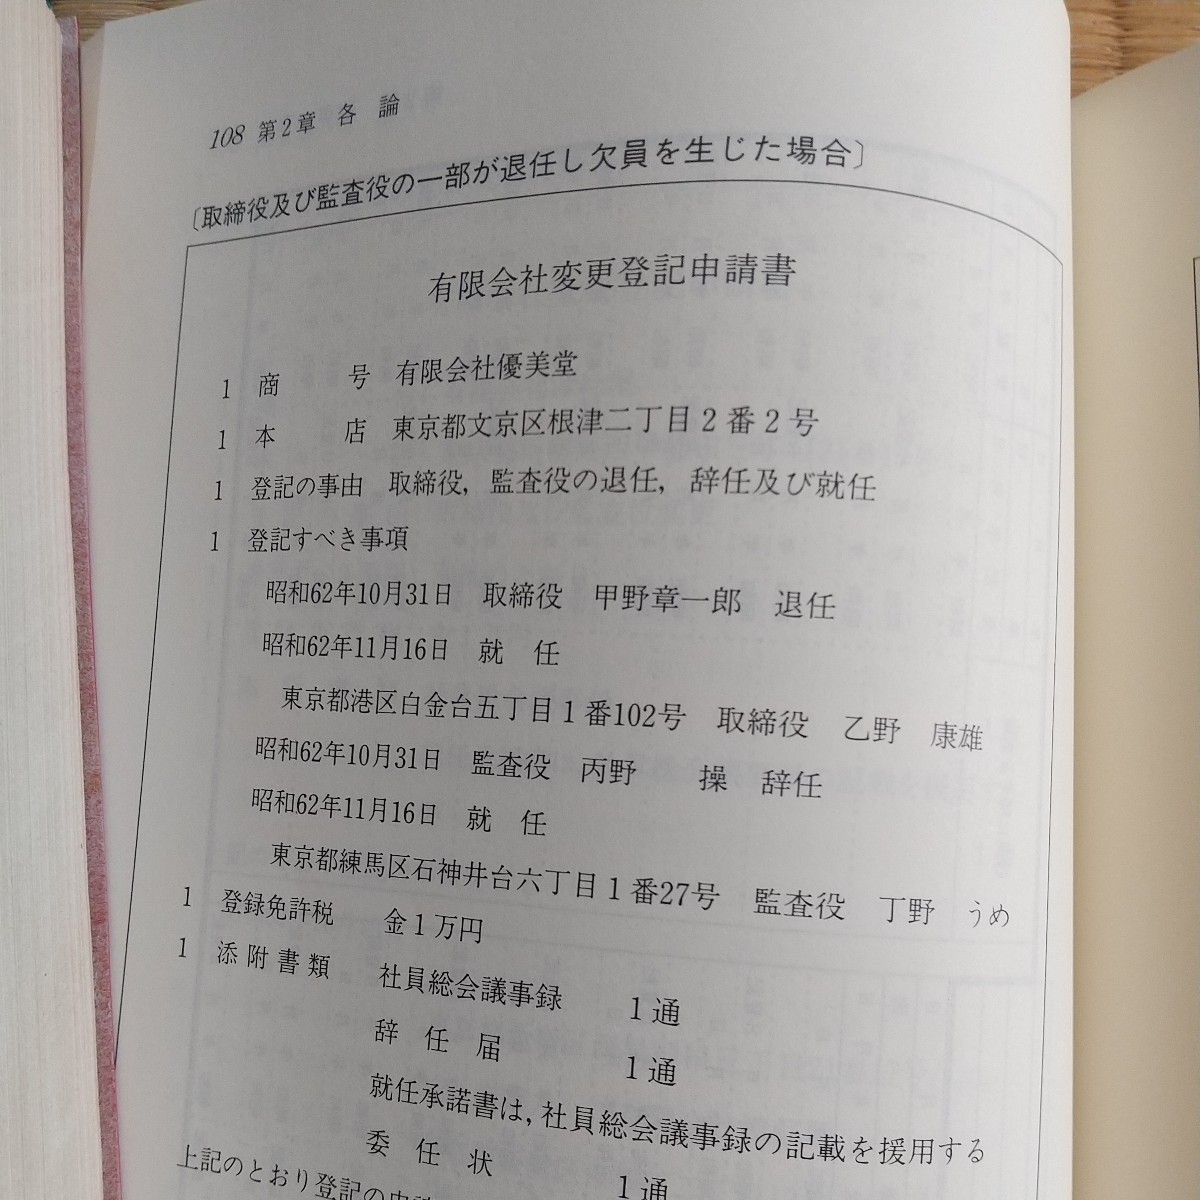 108 第2章 各 論
〔取締役及び監査役の一部が退任し欠員を生じた場合〕
有限会社変更登記申請書
1 商 号 有限会社優美堂
1 本 店 東京都文京区根津二丁目2番2号
1 登記の事由 取締役，監査役の退任，辞任及び就任
1 登記すべき事項
昭和62年10月31日 取締役 甲野章一郎 退任
昭和62年11月16日 就 任
東京都港区白金台五丁目1番102号 取締役 乙野 康雄
昭和62年10月31日 監査役 丙野 操 辞任
昭和62年11月16日 就 任
東京都練馬区石神井台六丁目1番27号 監査役 丁野 うめ
1 登録免許税 金1万円
1 添附書類 社員総会議事録 1通
辞 任 届 1通
就任承諾書は，社員総会議事録の記載を援用する
委 任 状 1通
上記のとおり登記の申請